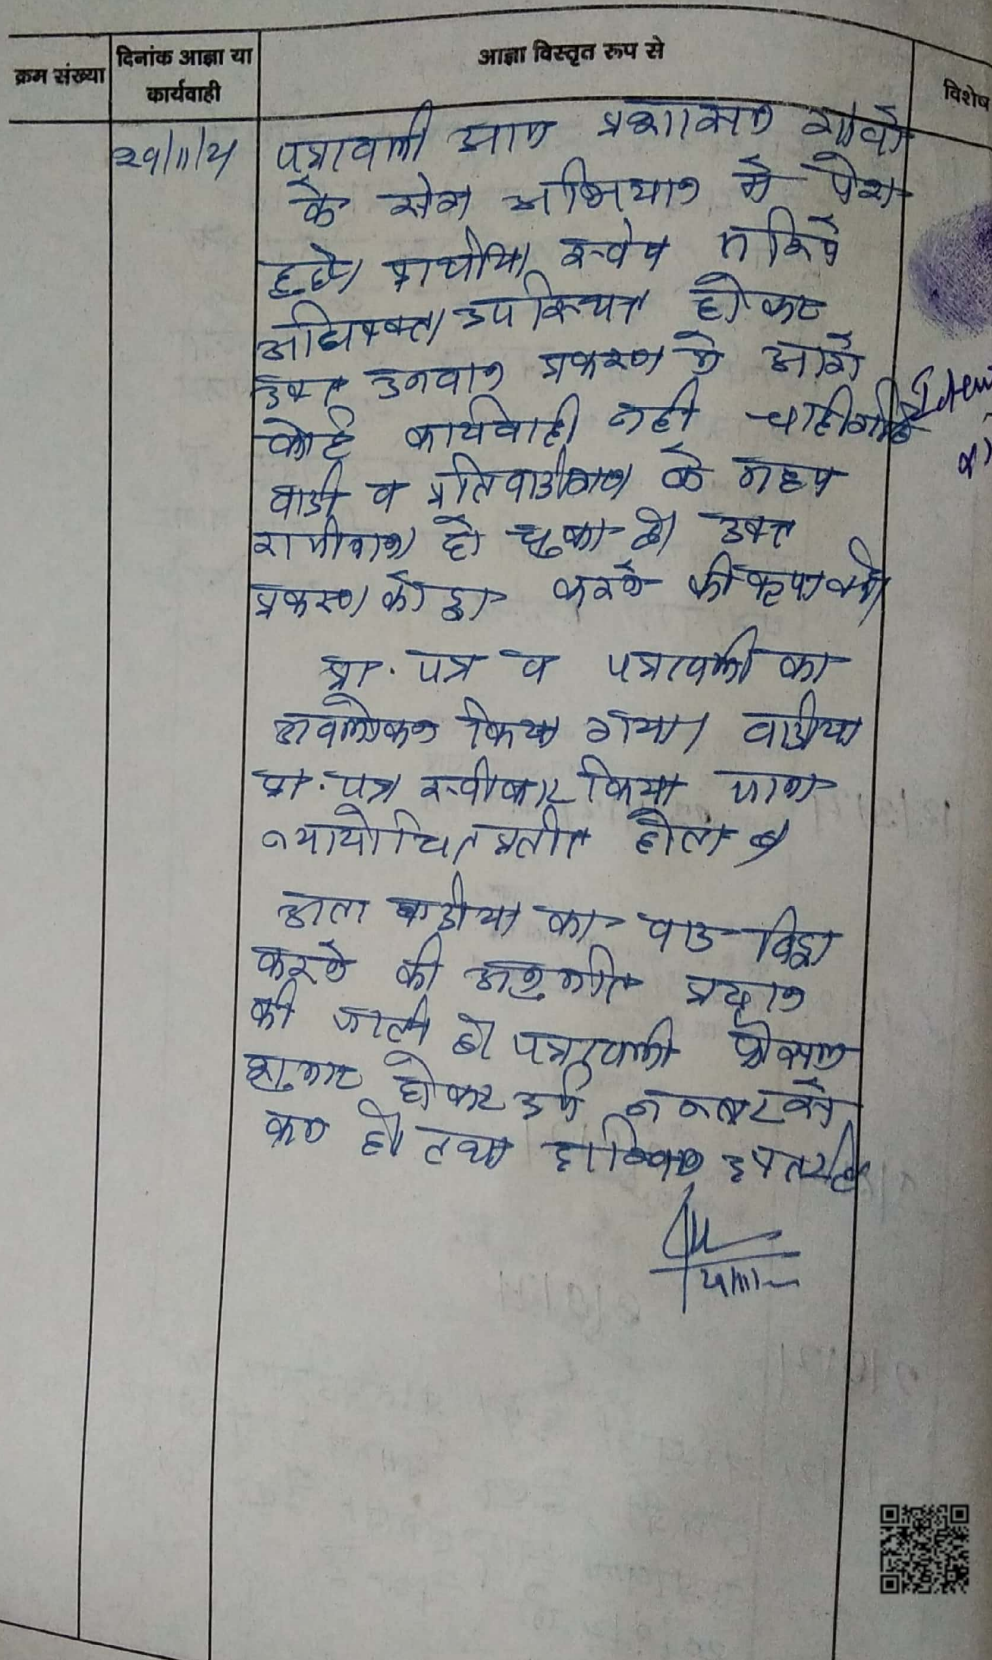 क्रम संख्या
दिनांक आज्ञा या
कार्यवाही
आज्ञा विस्तृत रूप से
विशेष
पत्रावली आज प्रशासन गांवो
के संग अभियान में पेश
हुई। प्रार्थीया स्वयं मय
अधिवक्ता उपस्थित होकर
उक्त उनवान प्रकरण में आगे
कोई कार्यवाही नही चाही
वादी व प्रतिवादीगण के मध्य
राजीनामा हो चुका है। उक्त
प्रकरण को ड्रा करने की कृपा करे।
प्रा. पत्र व पत्रावली का
अवलोकन किया गया। वादीया
प्रा. पत्र स्वीकार किया जाना
न्यायोचित प्रतीत होता है।
अतः वादीया का वाद विड्रा
करने की अनुमति प्रदान
की जाती है। पत्रावली फैसल
शुमार होकर नम्बर से
कम हो तथा दाखिल दफ्तर हो